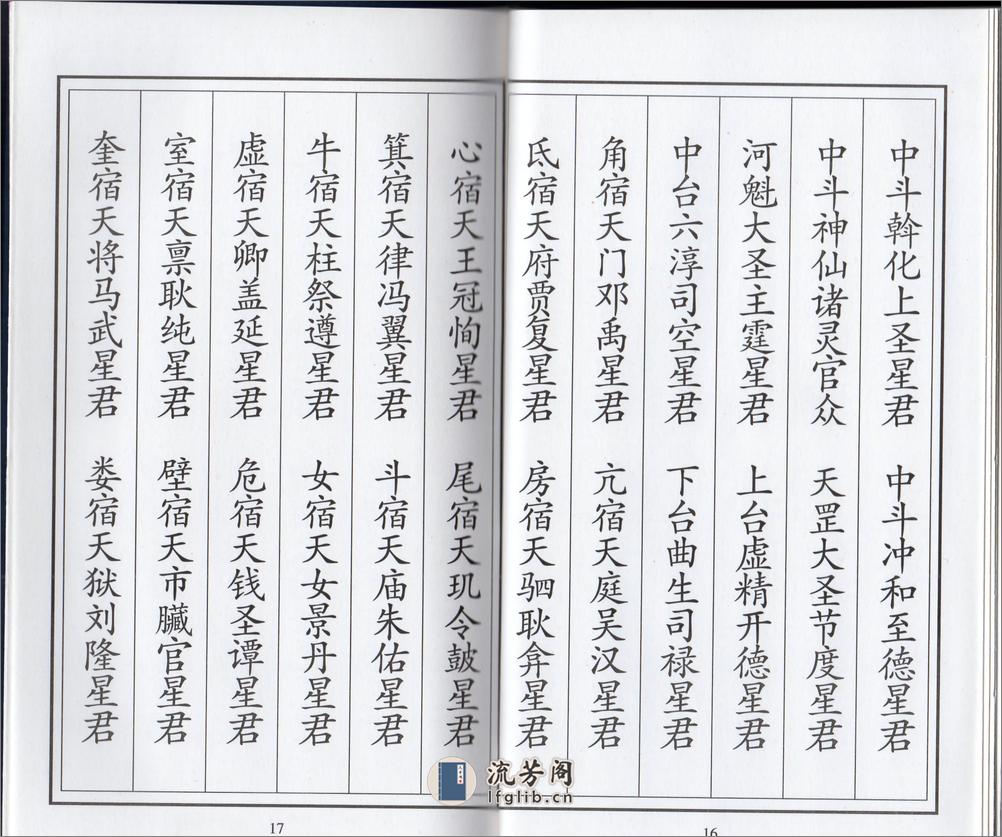 中斗斡化上圣星君 中斗冲和至德星君
中斗神仙诸灵官众 天罡大圣节度星君
河魁大圣主霆星君 上台虚精开德星君
中台六淳司空星君 下台曲生司禄星君
角宿天门邓禹星君 亢宿天庭吴汉星君
氐宿天府贾复星君 房宿天驷耿弇星君
16
心宿天王冠恂星君 尾宿天玑令皷星君
箕宿天律冯翼星君 斗宿天庙朱佑星君
牛宿天柱祭遵星君 女宿天女景丹星君
虚宿天卿盖延星君 危宿天钱圣谭星君
室宿天禀耿纯星君 壁宿天市臟官星君
奎宿天将马武星君 娄宿天狱刘隆星君
17
流芳阁
lfglib.cn